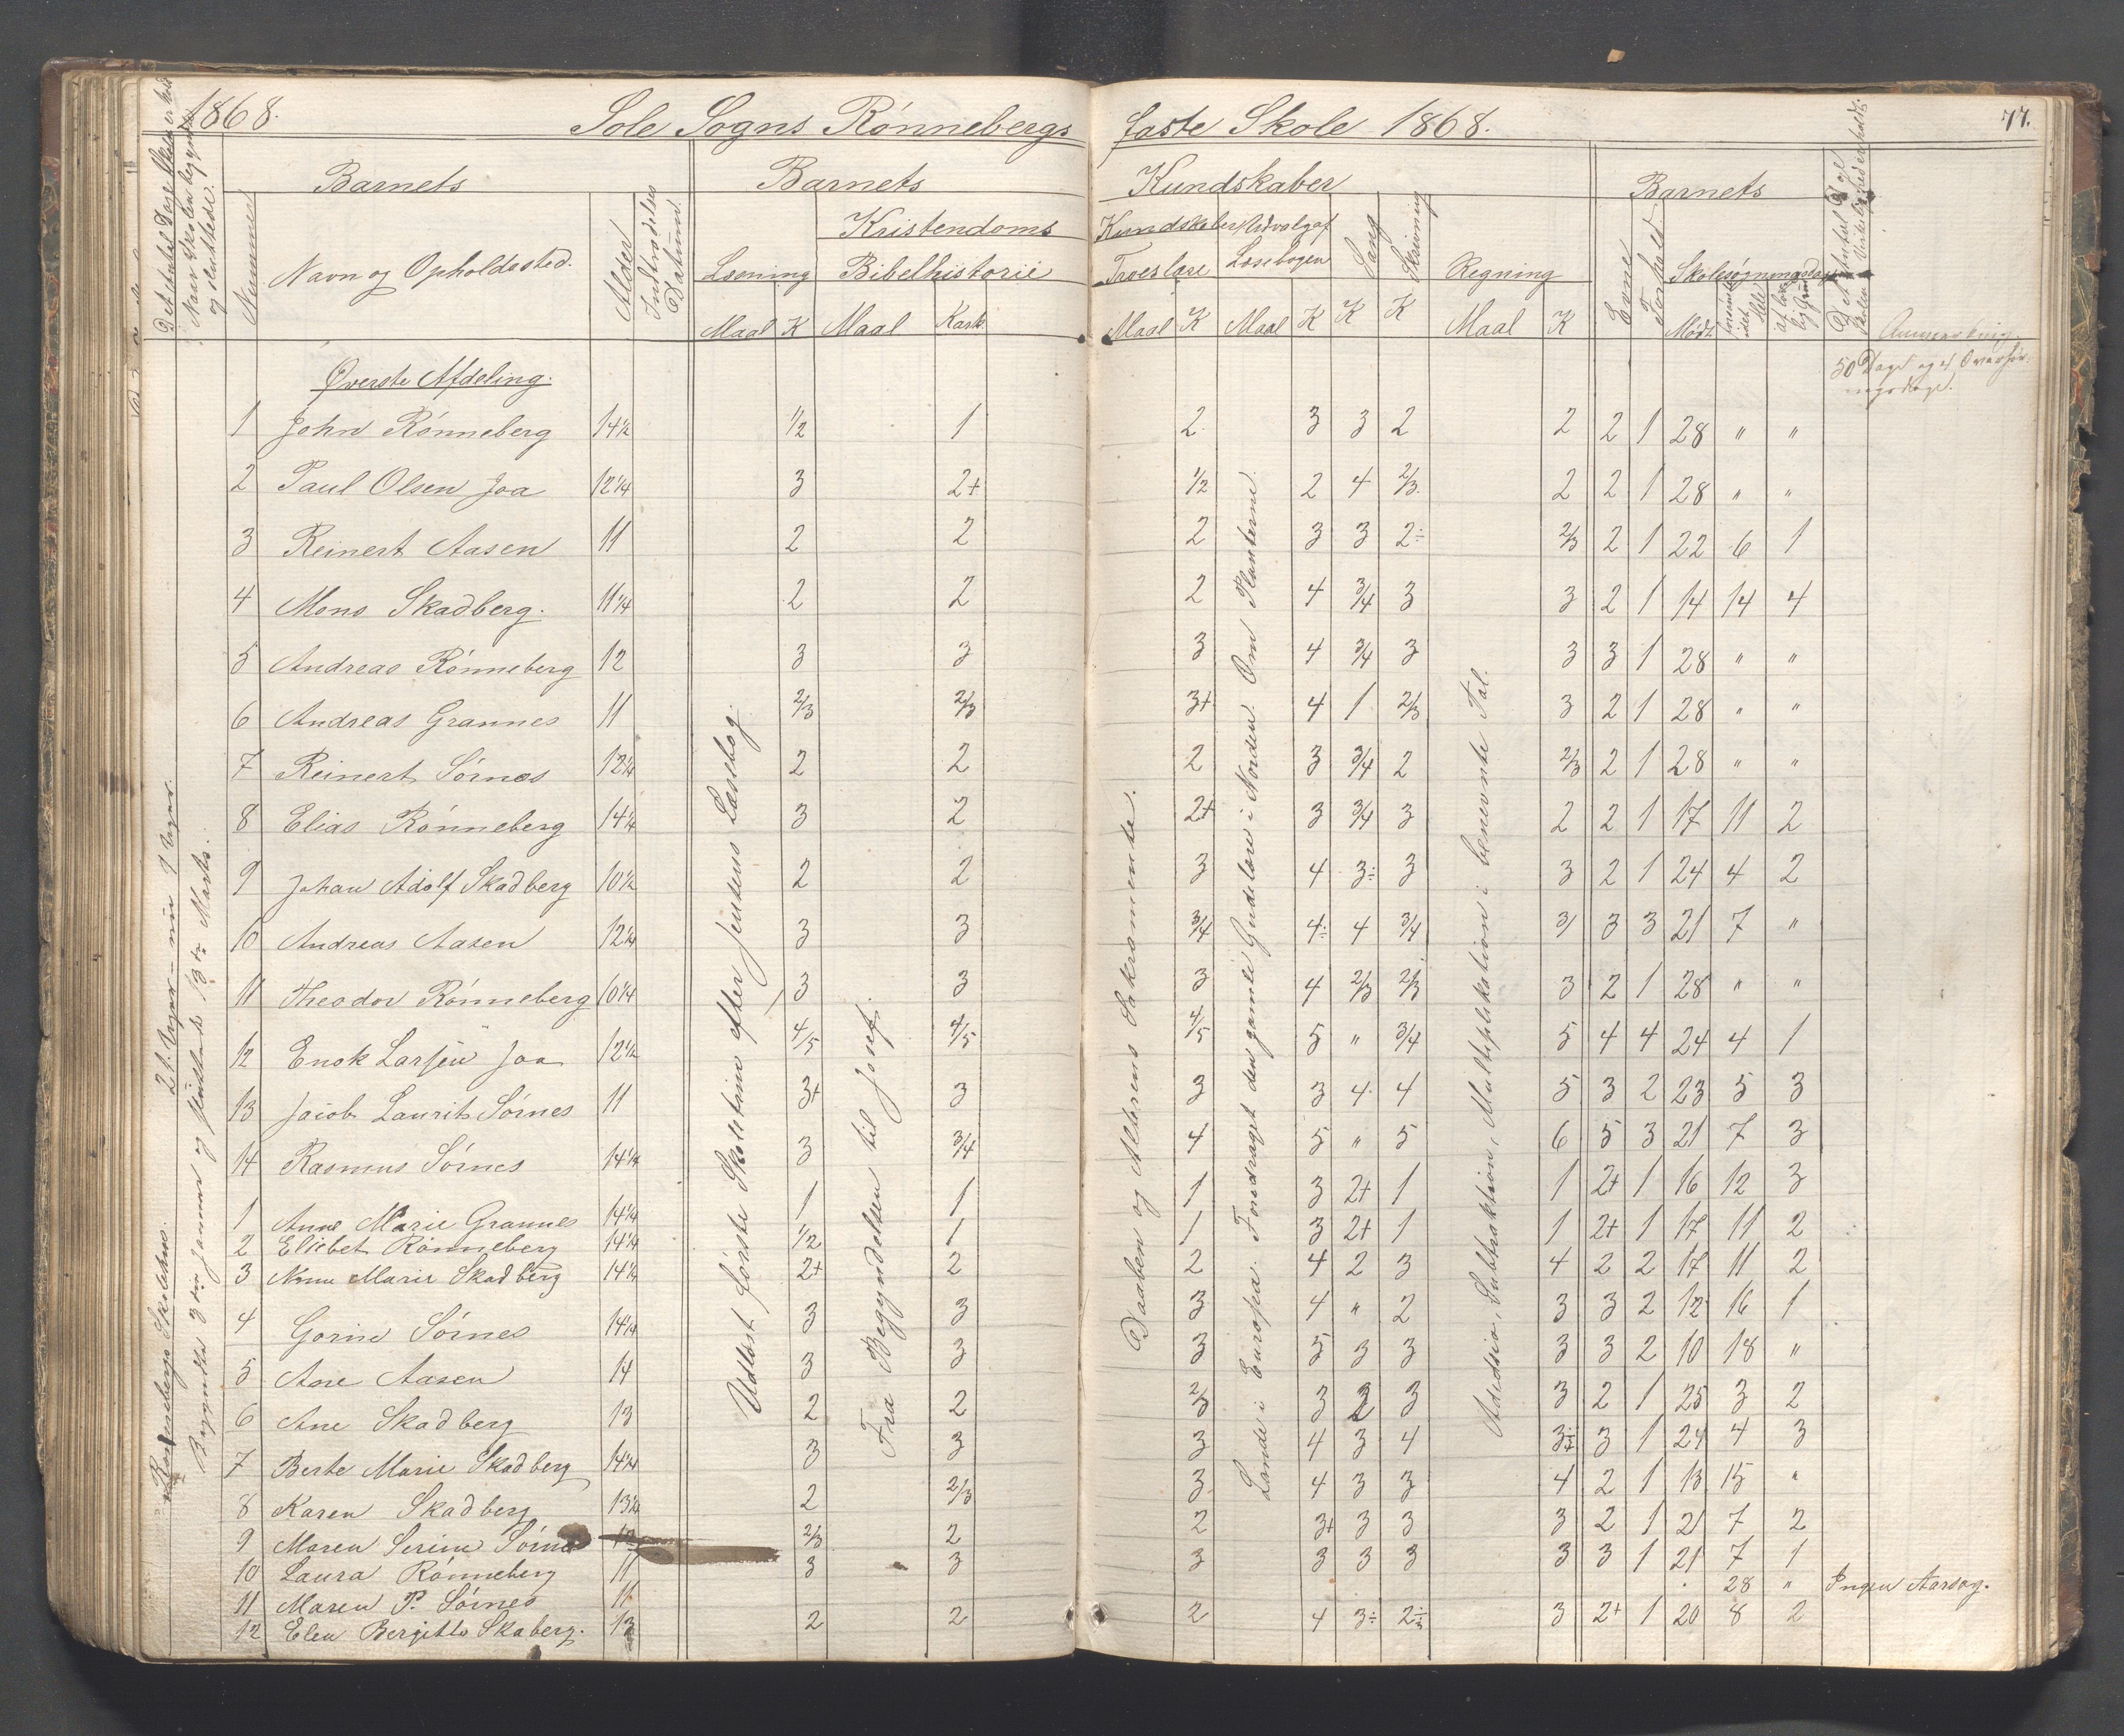 1868. Sole Sogns Rønnebergs faste Skole 1868. 77.
Barnets Barnets Kundskaber Barnets
Nummer Navn og Opholdssted. Alder Indtrædelses Datum.
Læsning Kristendoms Kundskaber Udvalg af Læsebogen Sang Skrivning Regning Evne Forhold Skolesøgningsdage
Bibelhistorie Troeslære
Maal K Maal Kark. Maal K Maal K K K Maal K Mødt forsømt i det Hele af lovlig Grund Anmærkning
50 Dage og 1 Overhøringsdage.
Øverste Afdeling.
1 John Rønneberg 14½ 1/2 1 2 3 3 2 2 2 1 28 " "
2 Paul Olsen Joa 12¼ 3 2+ 1/2 2 4 2/3 2 2 1 28 " "
3 Reinert Aasen 11 2 2 2 3 3 2÷ 2/3 2 1 22 6 1
4 Mons Skadberg. 11¼ 2 2 2 4 3/4 3 3 2 1 14 14 4
5 Andreas Rønneberg 12 3 3 3 4 3/4 3 3 3 1 28 " "
6 Andreas Grannes 11 2/3 2/3 3+ 4 1 2/3 3 2 1 28 " "
7 Reinert Sørnes 12¼ 2 2 2 3 3/4 2 2/3 2 1 28 " "
8 Elias Rønneberg 14¼ 3 2 2+ 3 3/4 3 2 2 1 17 11 2
9 Johan Adolf Skadberg 10½ 2 2 3 4 3÷ 3 3 2 1 24 4 2
10 Andreas Aasen 12¼ 3 3 3/4 4÷ 4 3/4 3/ 3 3 21 7 "
11 Theodor Rønneberg 10¼ 3 3 3 4 2/3 2/3 3 2 1 28 " "
12 Enok Larsen Joa 12½ 4/5 4/5 4/5 5 " 3/4 5 4 4 24 4 1
13 Jacob Laurits Sørnes 11 3+ 3 3 3 4 4 5 3 2 23 5 3
14 Rasmus Sørnes 14¼ 3 3/4 4 5 " 5 6 5 3 21 7 3
1 Anne Marie Grannes 14¼ 1 1 1 3 2+ 1 1 2+ 1 16 12 3
2 Elisbet Rønneberg 14¼ 1/2 1 1 3 2+ 1 1 2+ 1 17 11 2
3 Anne Marie Skadberg 14¼ 2+ 2 2 4 2 3 4 2 2 17 11 2
4 Gorine Sørnes 14¼ 3 3 3 4 " 2 3 3 2 12 16 1
5 Ane Aasen 14 3 3 3 5 3 3 3 3 2 10 18 "
6 Ane Skadberg 13 2 2 2/3 3 2 3 3 2 1 25 3 2
7 Berte Marie Skadberg 14¼ 3 3 3 4 3 4 3÷ 3 1 24 4 3
8 Karen Skadberg 13¼ 2 2/3 3 4 3 3 4 2 1 13 15 "
9 Maren Serine Sørnes 12 2/3 2 2 3+ 3 3 3 2 1 21 7 2
10 Laura Rønneberg 11 3 3 3 3 3 3 3 3 1 21 7 1
11 Maren P. Sørnes 11 28 " Ingen Aarsag.
12 Elen Bergitte Skaberg. 13 2 2 2 4 3÷ 2÷ 3 2+ 1 20 8 2
Rønnebergs Skolehus.
Begyndte 3die Januar og sluttede 13de Marts.
Udlæst første Skoletrin efter Jensens Læsebog.
Fra Begyndelsen til Josef.
Daaben og Alterens Sakramente.
Lande i Europa. Foredraget den gamle Gudelære i Norden. Om Planterne.
Addisio, Subtraktion, Multiplikation i benevnte Tal.